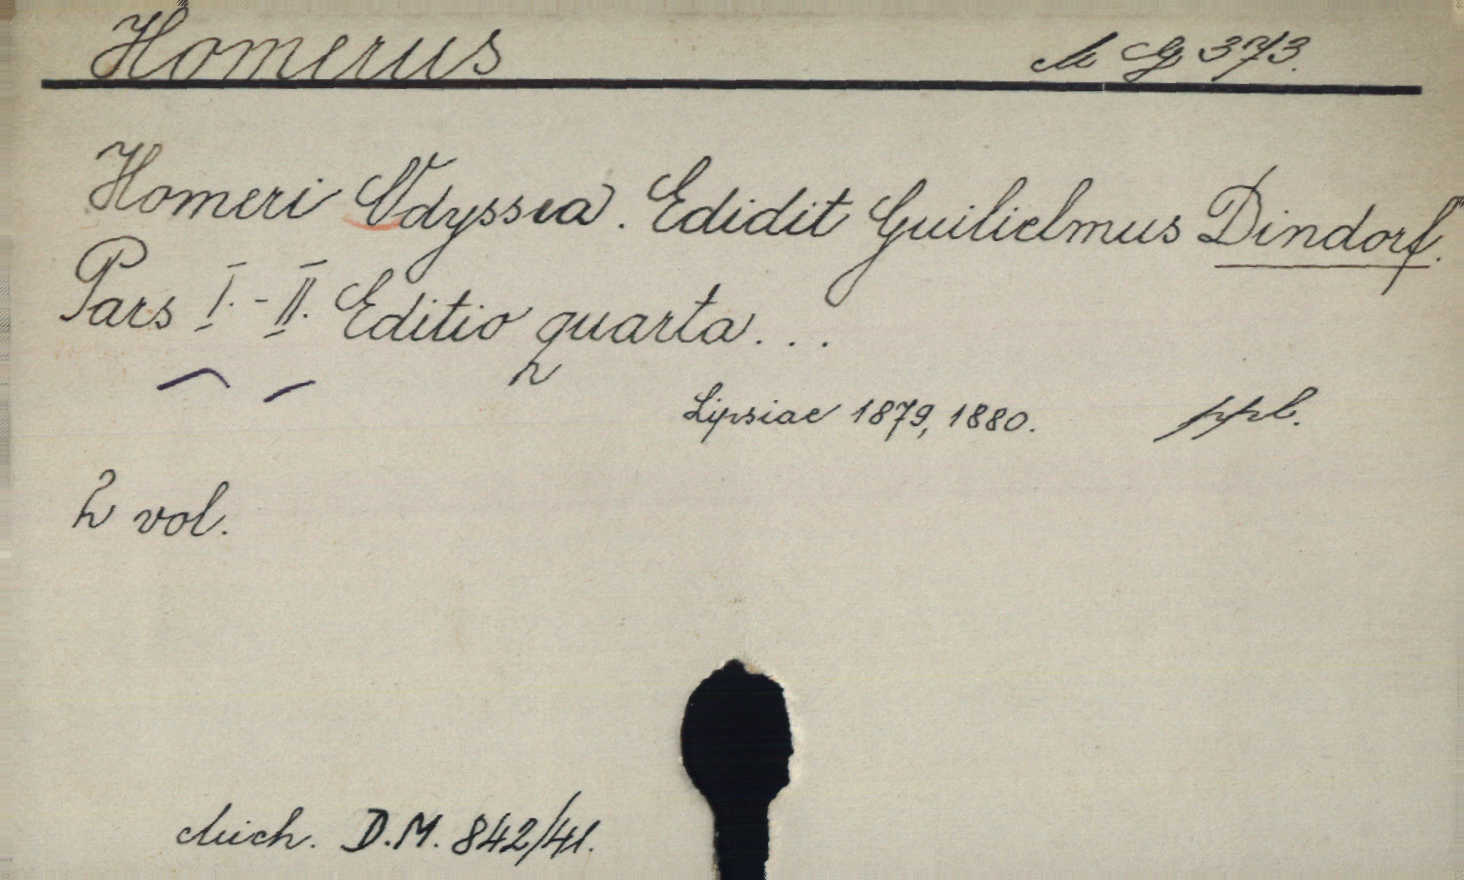 Homerus M G 373.
Homeri Odyssea. Edidit Guilielmus Dindorf.
Pars I.-II. Editio quarta...
Lipsiae 1879, 1880. ppb.
2 vol.
D.M. 842/41.